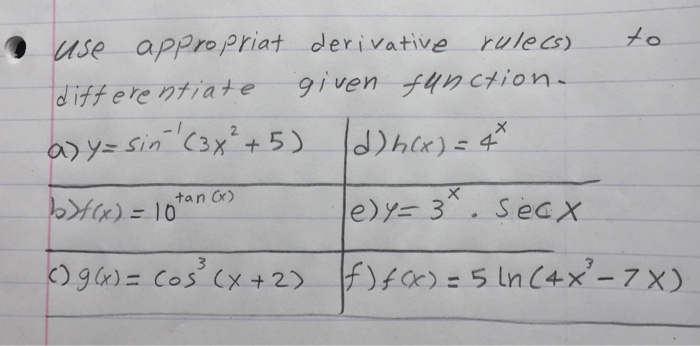 use appropriat derivative rule(s) to
differentiate given function.
a) y = sin⁻¹(3x² + 5)
d) h(x) = 4ˣ
b) f(x) = 10^tan(x)
e) y = 3ˣ . Sec x
c) g(x) = cos³(x + 2)
f) f(x) = 5 ln(4x³ - 7x)